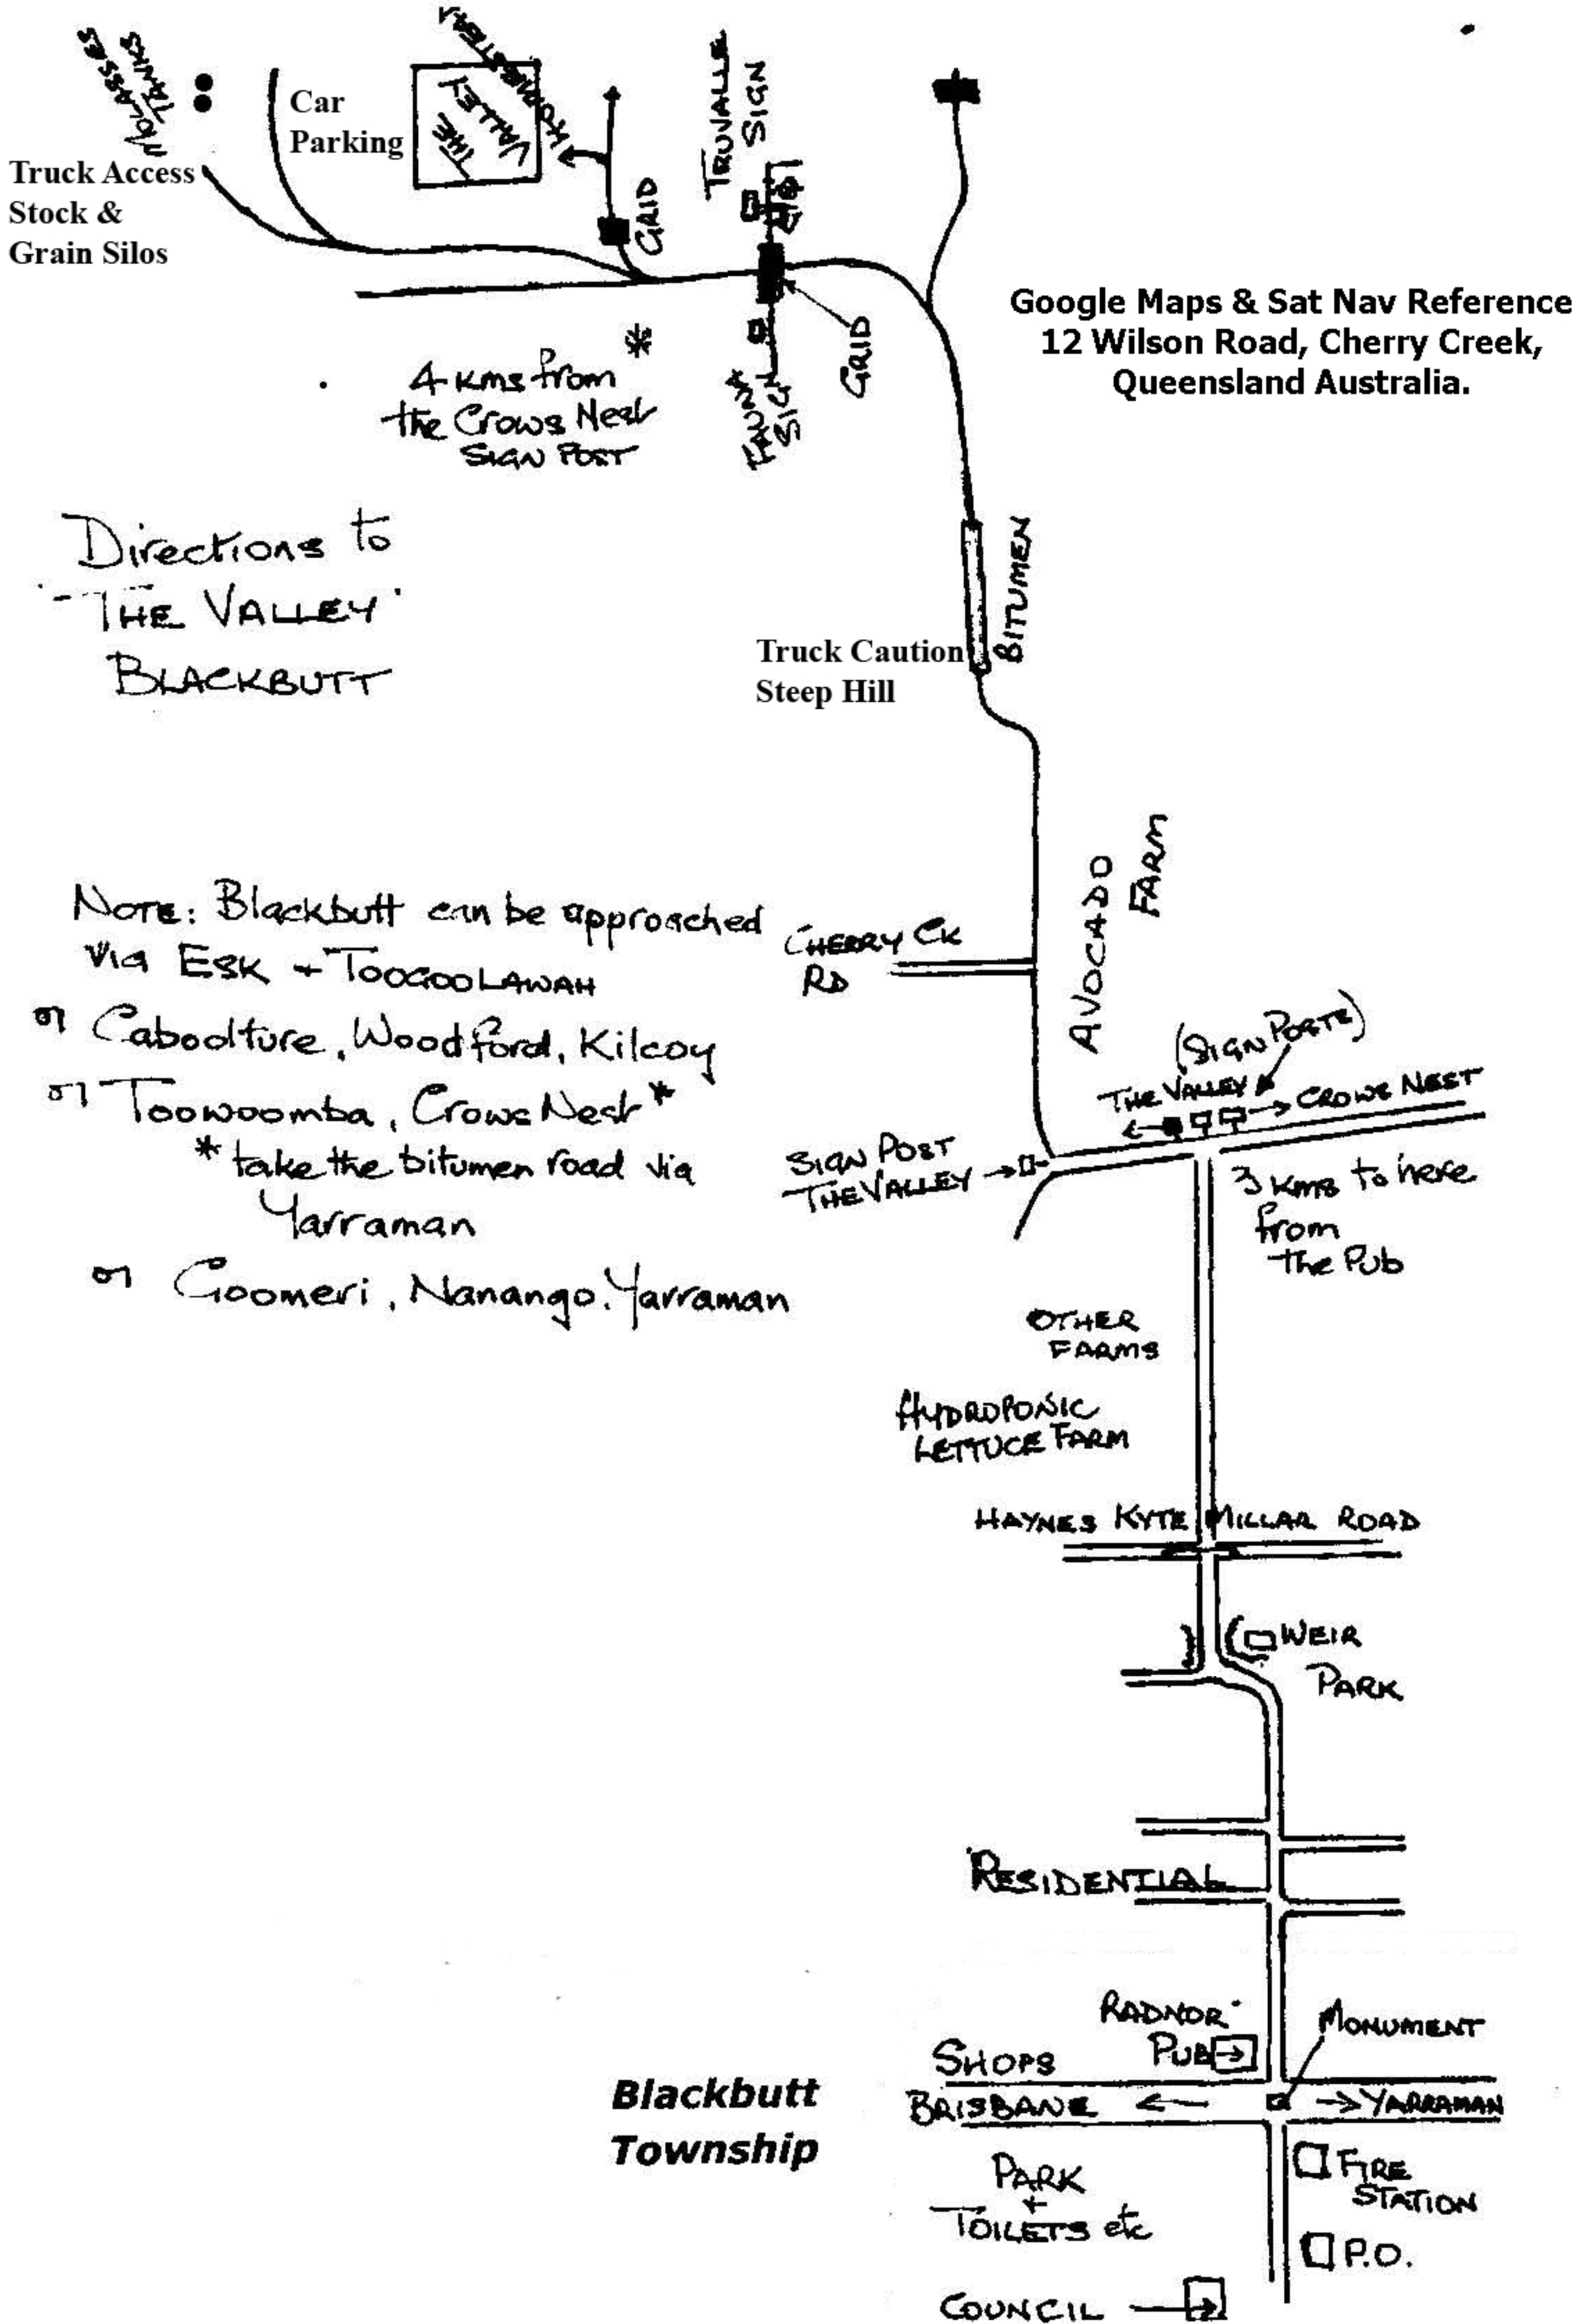 MOLASSES
TANKS
Car
Parking
THE
VALLEY
HOMESTEAD
TRUVALLE
SIGN
GRID
Truck Access
Stock &
Grain Silos
GRID
Google Maps & Sat Nav Reference
12 Wilson Road, Cherry Creek,
Queensland Australia.
*
4 kms from
the Crows Nest
SIGN POST
SIGN
Directions to
'THE VALLEY'
BLACKBUTT
BITUMEN
Truck Caution
Steep Hill
AVOCADO
FARM
NOTE: Blackbutt can be approached
via ESK + TOOGOOLAWAH
or Caboolture, Woodford, Kilcoy
or Toowoomba, Crows Nest *
* take the bitumen road via
Yarraman
or Goomeri, Nanango, Yarraman
CHERRY CK
RD
(SIGN POSTS)
THE VALLEY
CROWS NEST
SIGN POST
THE VALLEY
3 kms to here
from
the Pub
OTHER
FARMS
HYDROPONIC
LETTUCE FARM
HAYNES KYTE MILLAR ROAD
WEIR
PARK
RESIDENTIAL
RADNOR
PUB
MONUMENT
SHOPS
BRISBANE
YARRAMAN
Blackbutt
Township
FIRE
STATION
PARK
+
TOILETS etc
P.O.
COUNCIL